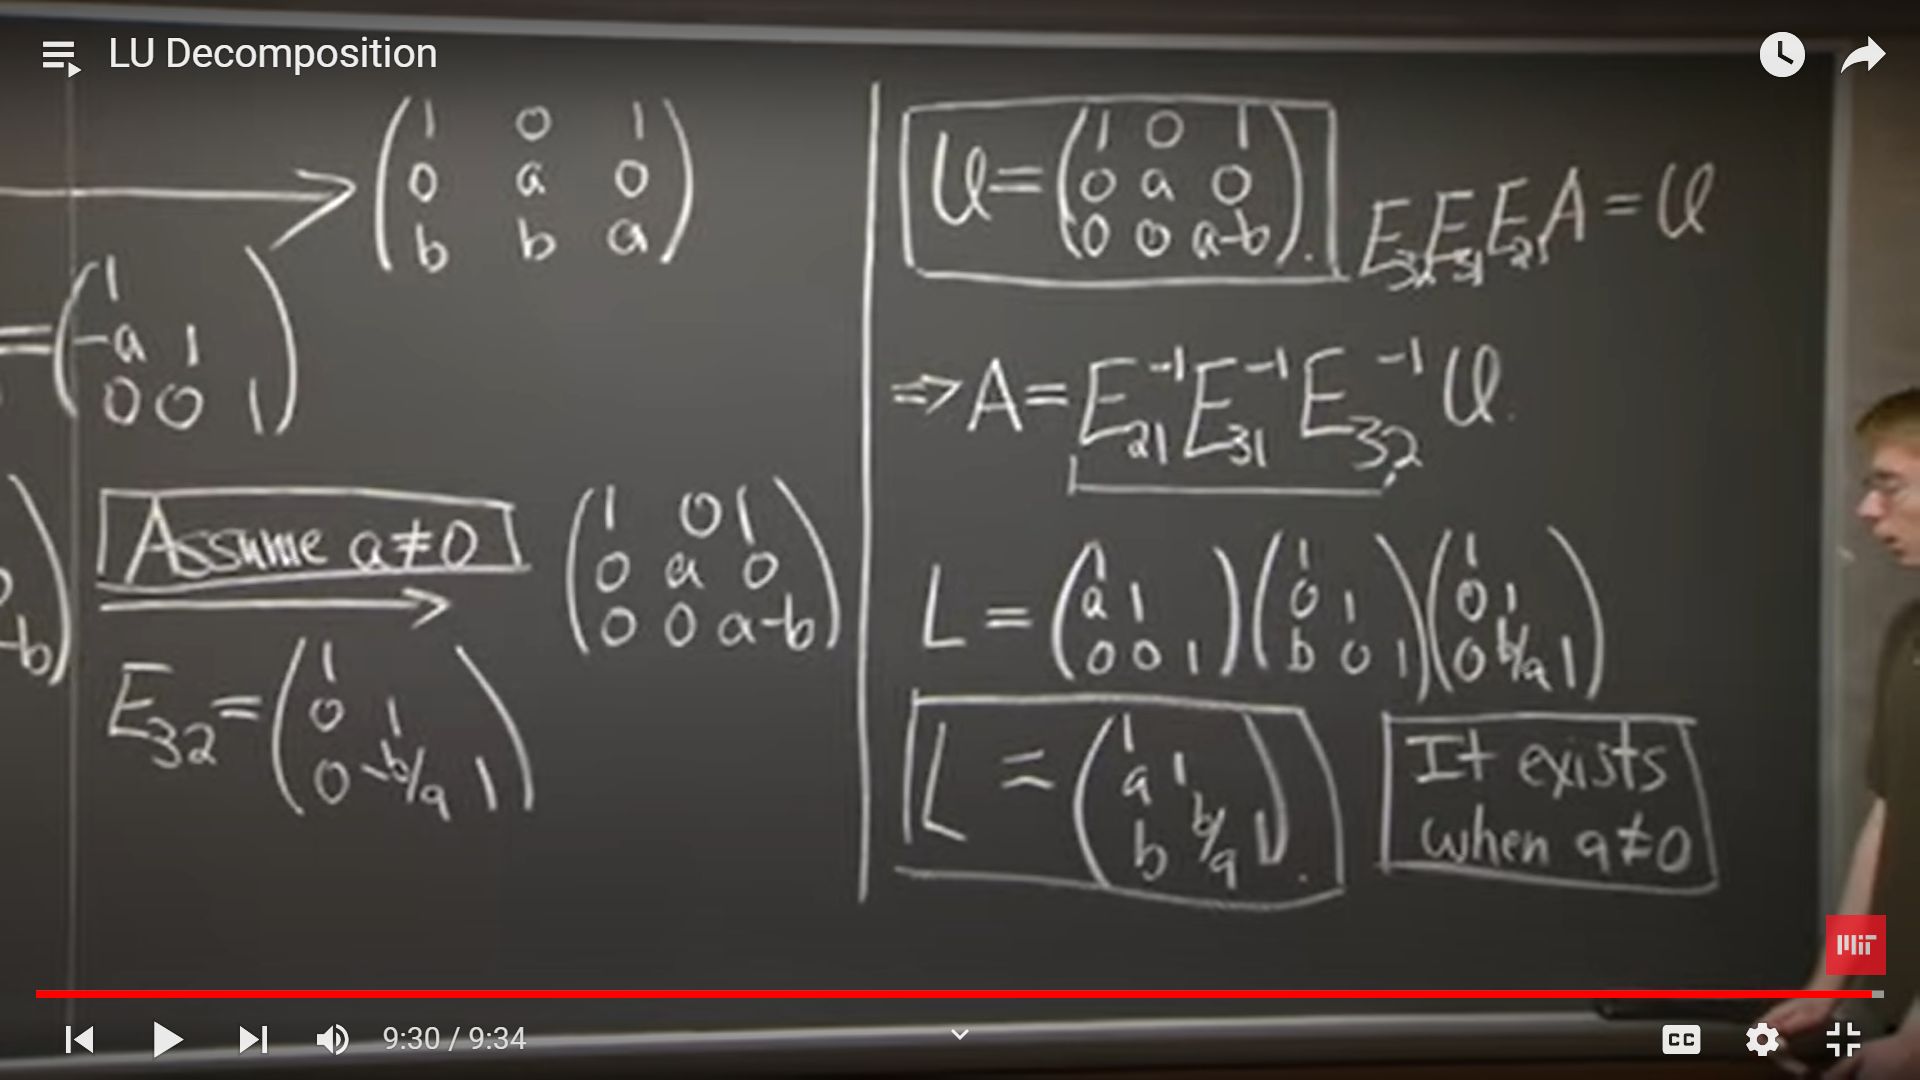 LU Decomposition
1 0 1
0 a 0
b b a
= 1
-a 1
0 0 1
-b
Assume a≠0
1 0 1
0 a 0
0 0 a-b
E₃₂ = 1
0 1
0 -b/a 1
U = 1 0 1
0 a 0
0 0 a-b .
E₃₂E₃₁E₂₁A = U
⇒ A = E₂₁⁻¹ E₃₁⁻¹ E₃₂⁻¹ U.
L = (1 / a 1 / 0 0 1) (1 / 0 1 / b 0 1) (1 / 0 1 / 0 b/a 1)
L = 1
a 1
b b/a 1 .
It exists
when a≠0
MIT
9:30 / 9:34
CC